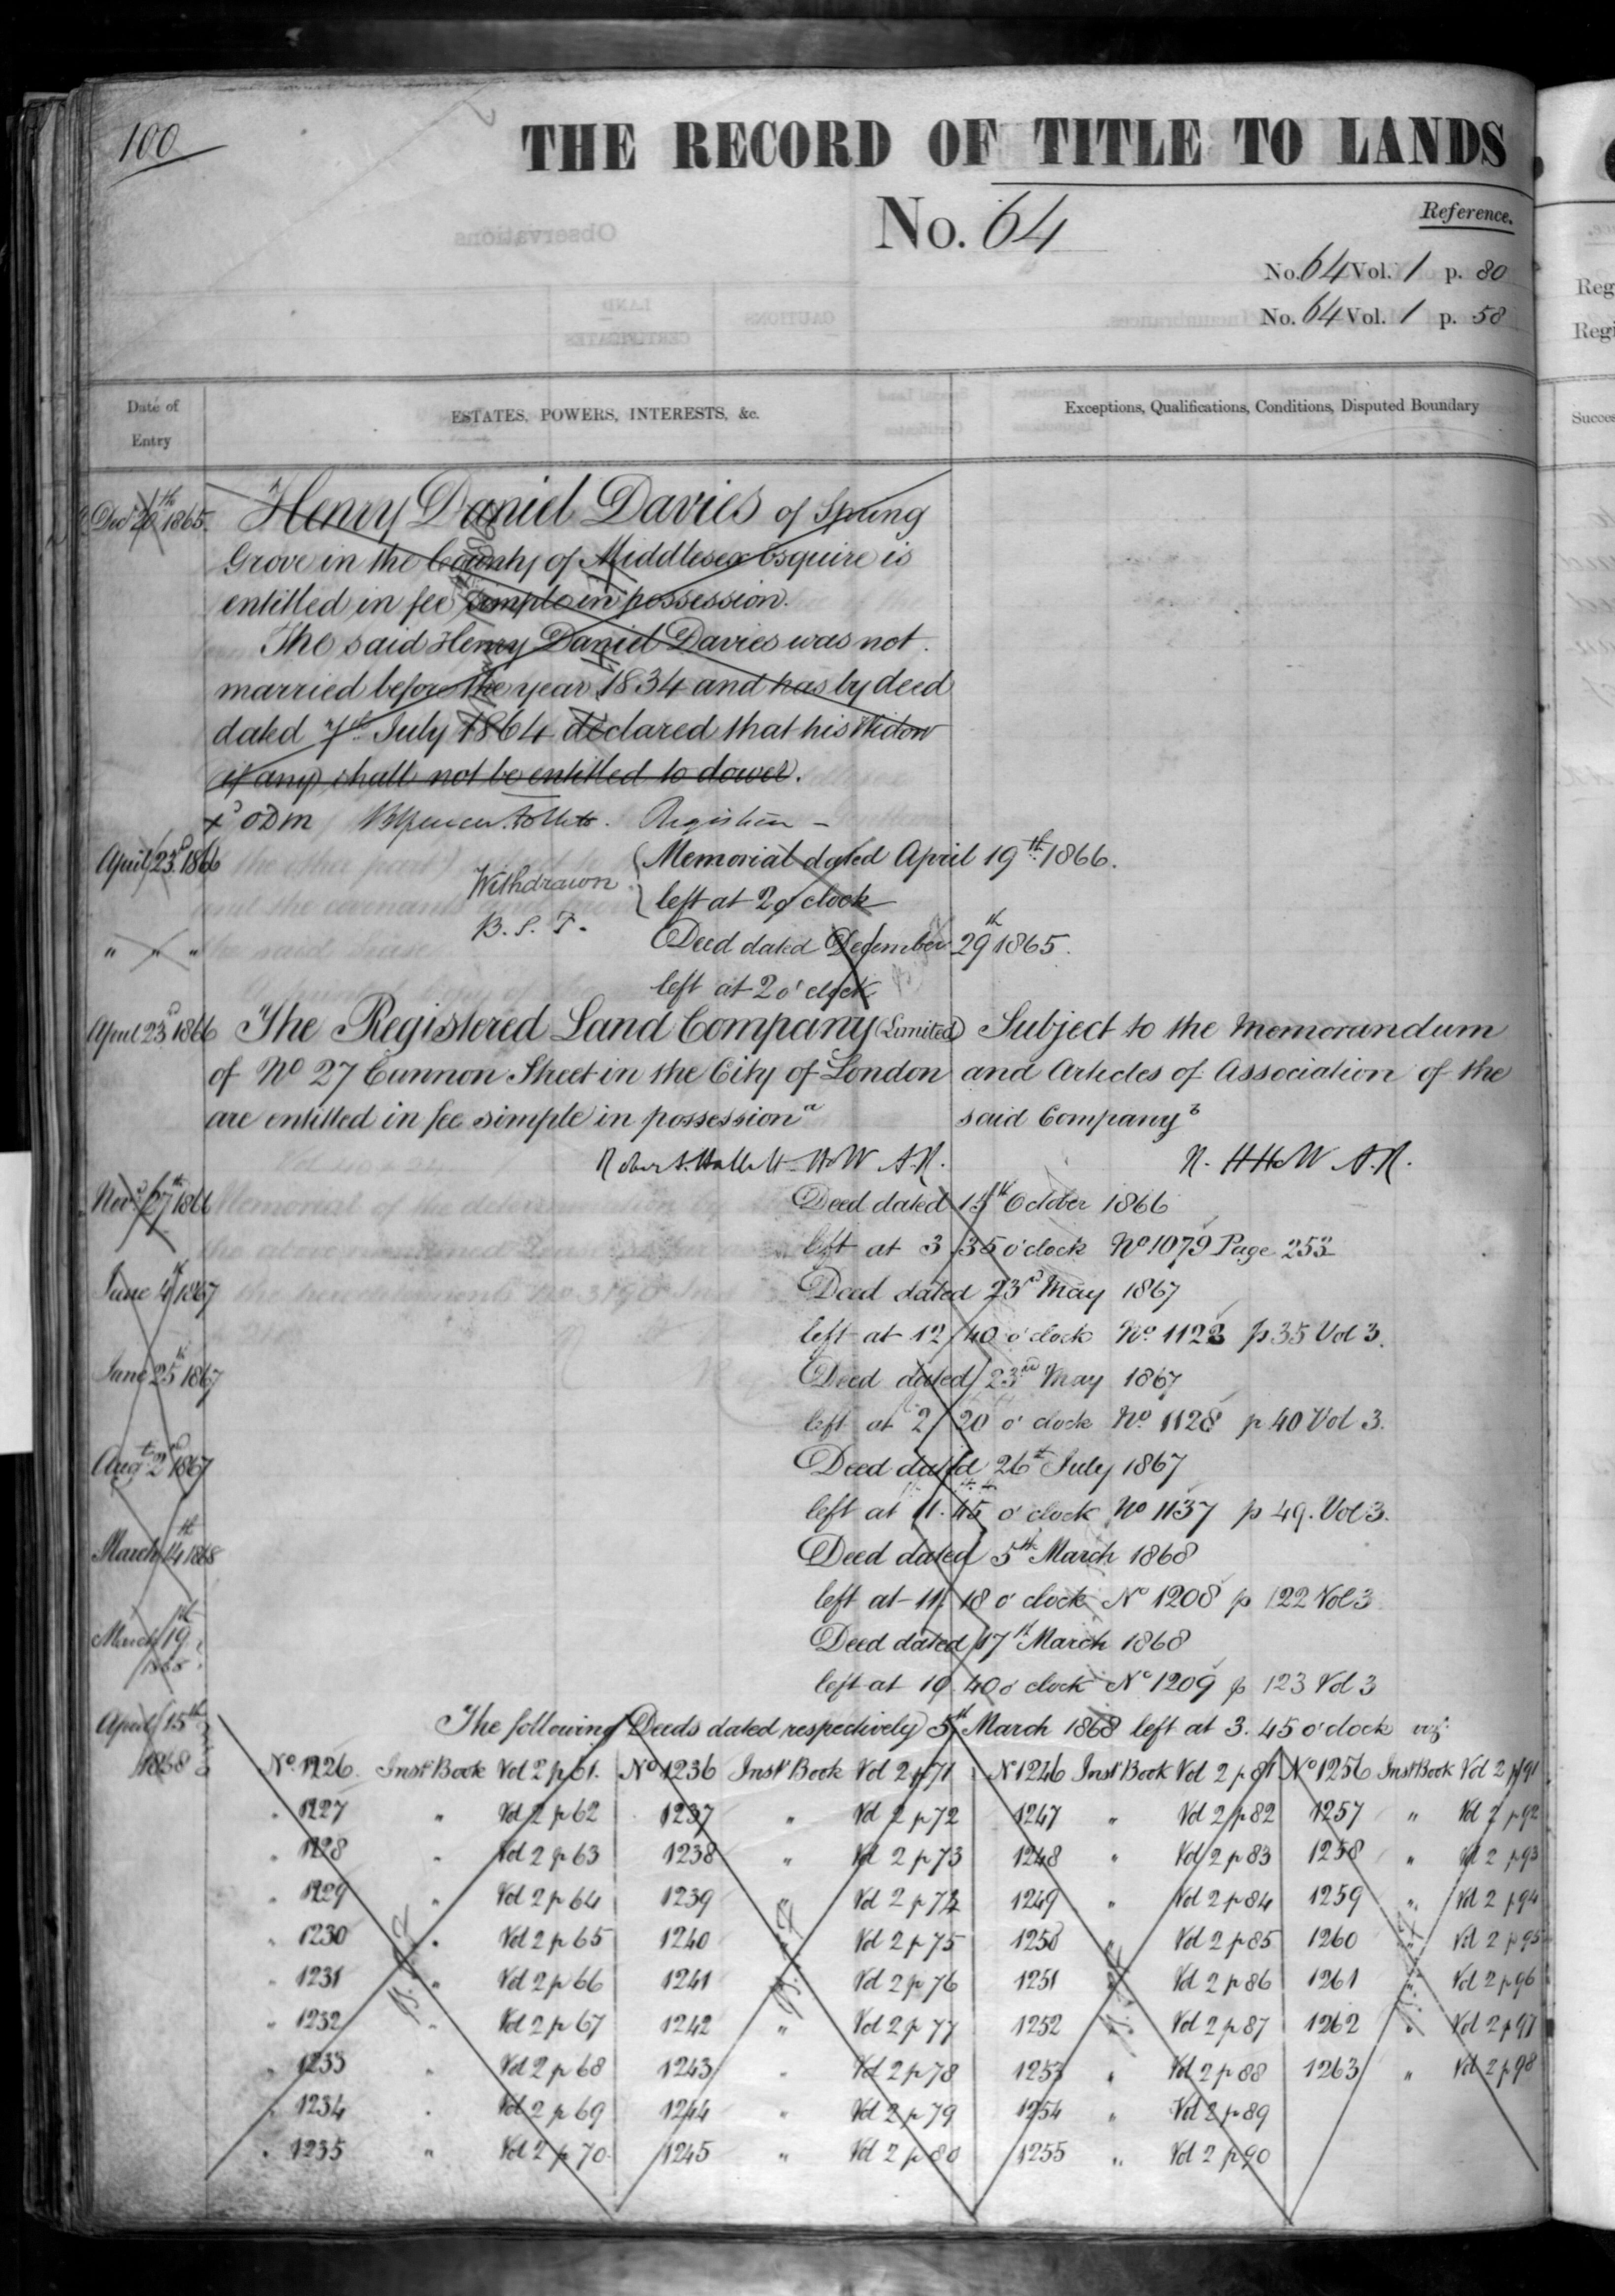 100
THE RECORD OF TITLE TO LANDS
No. 64
Reference.
No. 64 Vol. 1 p. 80
No. 64 Vol. 1 p. 58
Date of Entry
ESTATES, POWERS, INTERESTS, &c.
Exceptions, Qualifications, Conditions, Disputed Boundary
Decr 20th 1865. Henry Daniel Davies of Spring
Grove in the County of Middlesex Esquire is
entitled in fee simple in possession.
The said Henry Daniel Davies was not
married before the year 1834 and has by deed
dated 7th July 1864 declared that his Widow
if any shall not be entitled to dower.
Registrar
April 23d 1866 Withdrawn Memorial dated April 19th 1866.
left at 2 o'clock
B. S. F.
" " " Deed dated December 29th 1865.
left at 2 o'clock
April 23d 1866 The Registered Land Company (Limited) Subject to the Memorandum
of No 27 Cannon Street in the City of London and Articles of Association of the
are entitled in fee simple in possession said Company
Robert Hallett A.R. A.R.
Novr 27th 1866 Deed dated 15th October 1866
left at 3 35 o'clock No 1079 Page 253
June 4th 1867 Deed dated 23rd May 1867
left at 12 40 o'clock No. 1122 p 35 Vol 3.
June 25th 1867 Deed dated 23rd May 1867
left at 2 20 o'clock No. 1128 p 40 Vol 3.
Augt 2nd 1867 Deed dated 26th July 1867
left at 11.45 o'clock No 1137 p 49. Vol 3.
March 14th 1868 Deed dated 5th March 1868
left at 11 18 o'clock No 1208 p 122 Vol 3
March 19th 1868 Deed dated 17th March 1868
left at 10 40 o'clock No 1209 p 123 Vol 3
April 15th 1868 The following Deeds dated respectively 5th March 1868 left at 3. 45 o'clock viz:
No. 1226. Inst Book Vol 2 p 61. No 1236 Inst Book Vol 2 p 71 No 1246 Inst Book Vol 2 p 81 No 1256 Inst Book Vol 2 p 91
" 1227 " Vol 2 p 62 1237 " Vol 2 p 72 1247 " Vol 2 p 82 1257 " Vol 2 p 92
" 1228 " Vol 2 p 63 1238 " Vol 2 p 73 1248 " Vol 2 p 83 1258 " Vol 2 p 93
" 1229 " Vol 2 p 64 1239 " Vol 2 p 74 1249 " Vol 2 p 84 1259 " Vol 2 p 94
" 1230 " Vol 2 p 65 1240 Vol 2 p 75 1250 " Vol 2 p 85 1260 " Vol 2 p 95
" 1231 " Vol 2 p 66 1241 Vol 2 p 76 1251 Vol 2 p 86 1261 " Vol 2 p 96
" 1232 " Vol 2 p 67 1242 " Vol 2 p 77 1252 " Vol 2 p 87 1262 " Vol 2 p 97
" 1233 " Vol 2 p 68 1243 " Vol 2 p 78 1253 " Vol 2 p 88 1263 " Vol 2 p 98
" 1234 " Vol 2 p 69 1244 " Vol 2 p 79 1254 " Vol 2 p 89
" 1235 " Vol 2 p 70 1245 " Vol 2 p 80 1255 " Vol 2 p 90